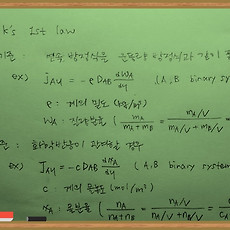 k's 1st law
기준 : 연속 방정식을 운동량 방정식과 같이
ex) j_AY = -ρ D_AB dW_A/dy (A, B binary sy
ρ : 계의 밀도 (kg/m³)
W_A : 질량분율 ( m_A/(m_A+m_B) = (m_A/V)/(m_A/V
준 : 화학반응이 관여할 경우
ex) J_AY = -c D_AB dx_A/dy (A, B binary system
c : 계의 몰농도 (mol/m³)
x_A : 몰분율 ( n_A/(n_A+n_B) = (n_A/V)/(n_A/V+n_B/V) =